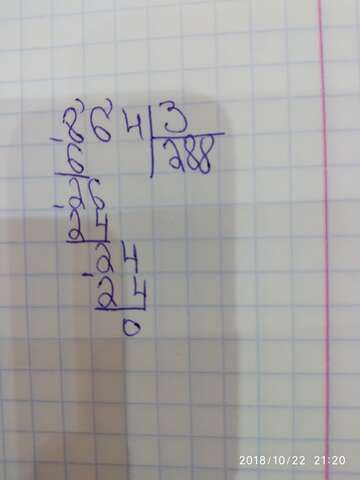 864 3
-6 288
-26
24
-24
24
0
2018/10/22 21:20